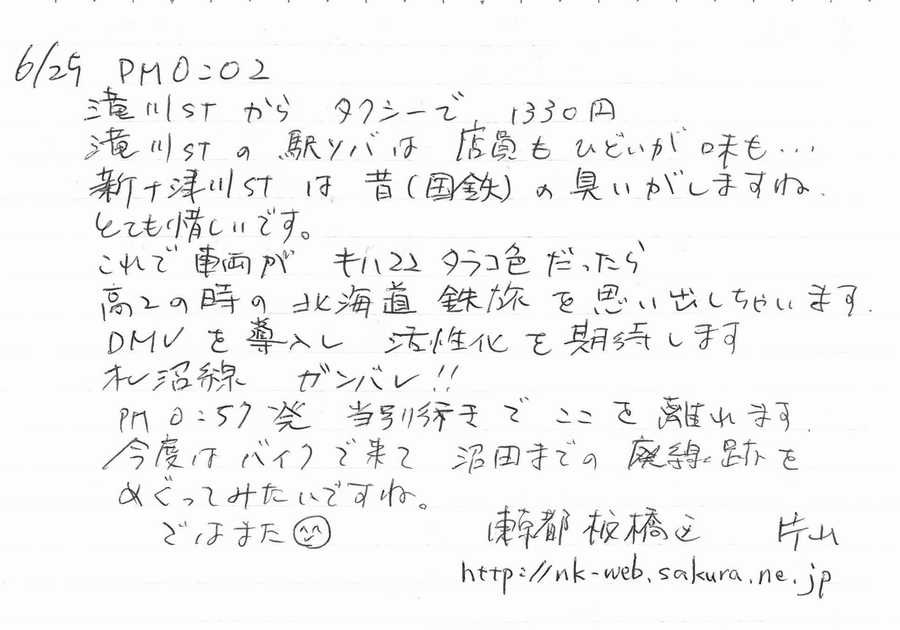 6/25 PM0:02
滝川STから タクシーで、1330円
滝川STの 駅ソバは 店員もひどいが 味も…
新十津川STは 昔(国鉄)の臭いがしますね.
とても惜しいです。
これで車両が キハ22 タラコ色だったら
高2の時の北海道 鉄旅を思い出しちゃいます.
DMVを導入し 活性化を期待します
札沼線 ガンバレ!!
PM0:57発 当別行きで ここを離れます.
今度はバイクで来て 沼田までの 廃線跡を
めぐってみたいですね。
ではまた
東京都板橋区 片山
http://nk-web.sakura.ne.jp